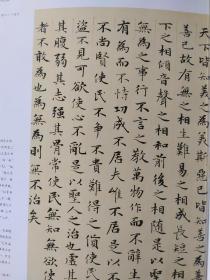 天下皆知美為美斯惡已皆知善之
善已故有無之相生難易之相成長短之相
下之相傾音聲之相和前後之相隨是以
無為之事行不言之教萬物作而不辭生
有為而不恃功成不居夫唯不居是以
不尚賢使民不爭不貴難得之貨使民
盜不見可欲使心不亂是以聖人之治也虛其
其腹弱其志強其骨常使民無知無欲使
者不敢為也為無為則無不治矣